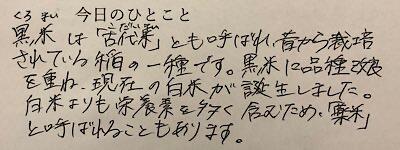 今日のひとこと
くろ まい
黒米は「古代米」とも呼ばれ、昔から栽培
されている稲の一種です。黒米に品種改良
を重ね、現在の白米が誕生しました。
白米よりも栄養素を多く含むため、「薬米」
と呼ばれることもあります。